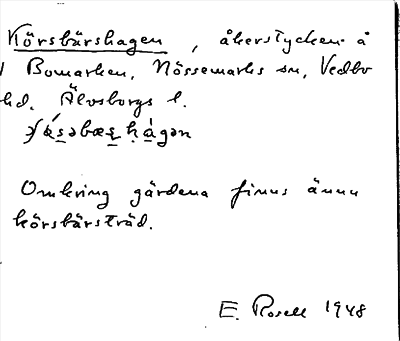 Körsbärshagen, åkerstycken å
Bomarken, Nössemarks sn, Vedbo
hd. Älvsborgs l.
Omkring gärdena finns ännu
körsbärsträd.
E. Rosell 1948